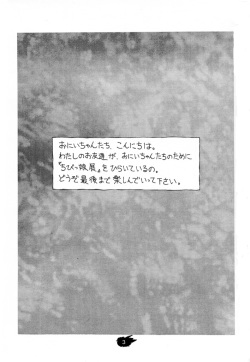 おにいちゃんたち、こんにちは。
わたしのお友達が、おにいちゃんたちのために
『ちびっ娘展』をひらいているの。
どうぞ最後まで楽しんでいて下さい。
3